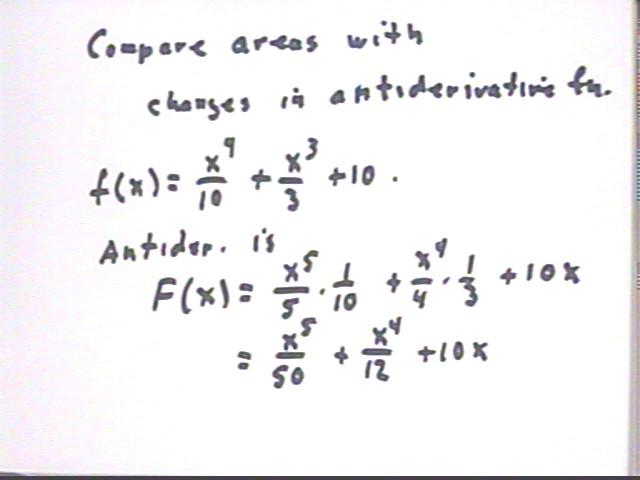 Compare areas with
changes in antiderivative fn.
f(x) = x^4/10 + x^3/3 + 10 .
Antider. is
F(x) = x^5/5 · 1/10 + x^4/4 · 1/3 + 10x
= x^5/50 + x^4/12 + 10x